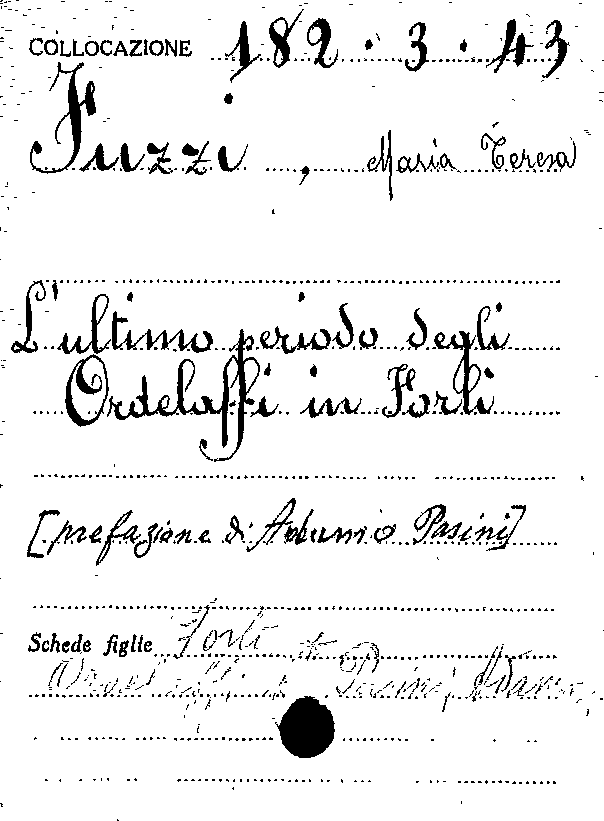 COLLOCAZIONE 182.3.43
Fuzzi, Maria Teresa
L'ultimo periodo degli
Ordelaffi in Forlì
[prefazione di Adamo Pasini]
Schede figlie Forlì
Ordelaffi Pasini, Adamo